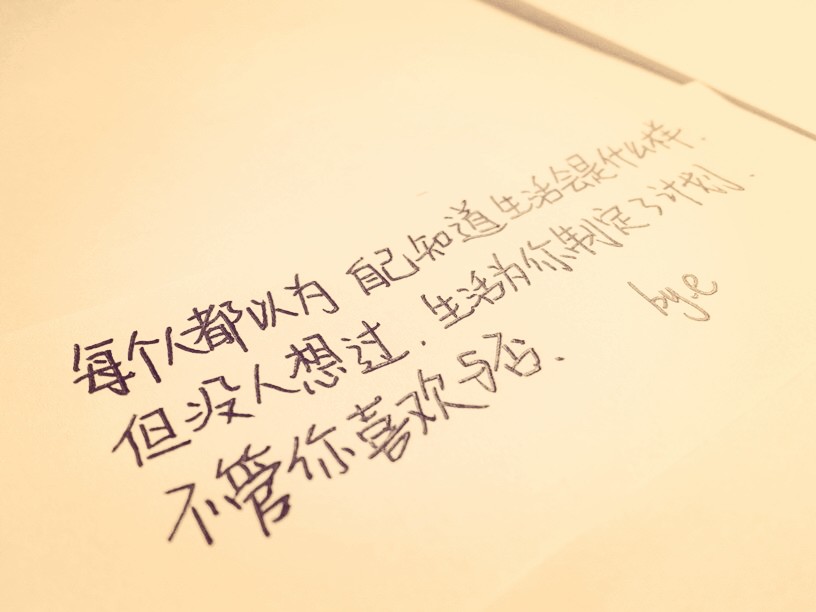 每个人都以为 自己知道生活会是什么样.
但没人想过.生活为你制定了计划.
不管你喜欢与否.
by.e